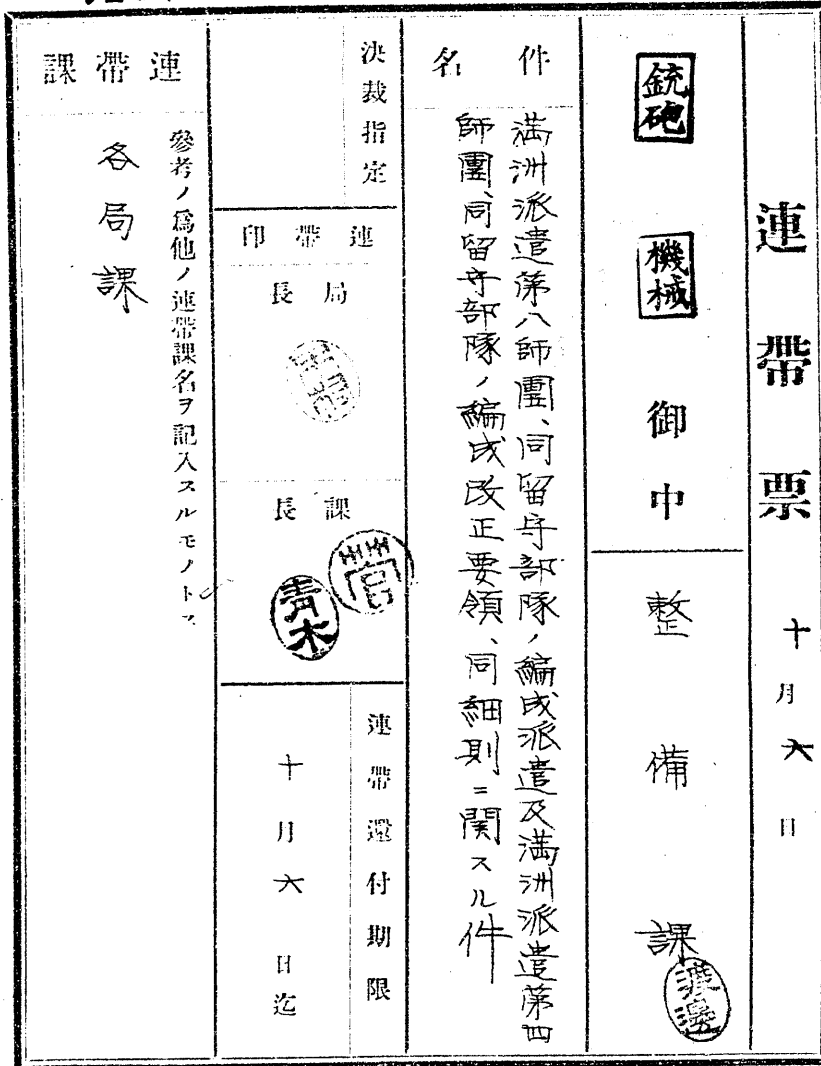 連帶票
十月六日
銃砲 機械 御中
整備課
渡邊
件名
満洲派遣第八師團、同留守部隊ノ編成派遣及満洲派遣第四
師團、同留守部隊ノ編成改正要領、同細則ニ関スル件
決裁指定
連帶印
局長
課長
菅
青木
連帶還付期限
十月六日迄
連帶課
參考ノ爲他ノ連帶課名ヲ記入スルモノトス
各局課